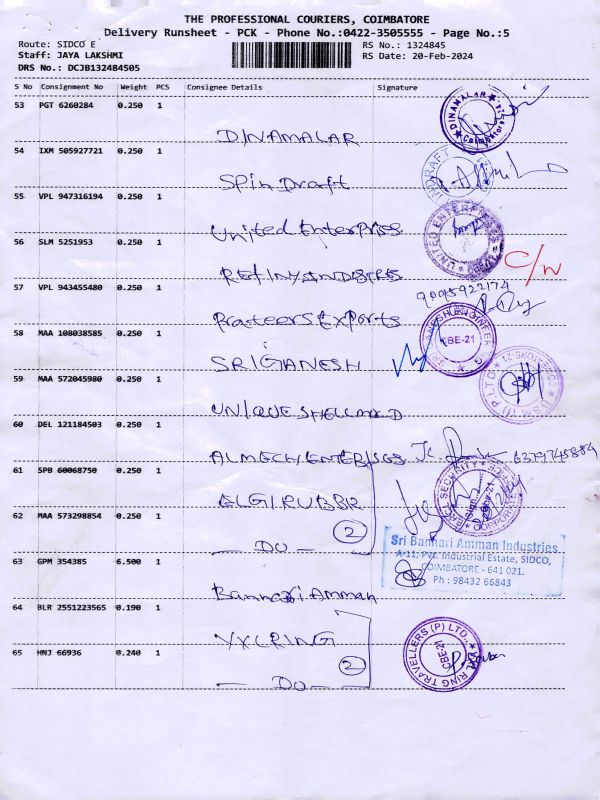 THE PROFESSIONAL COURIERS, COIMBATORE
Delivery Runsheet - PCK - Phone No.:0422-3505555 - Page No.:5
Route: SIDCO E
RS No.: 1324845
Staff: JAYA LAKSHMI
RS Date: 20-Feb-2024
DRS No.: DCJB132484505
S No Consignment No Weight PCS Consignee Details Signature
53 PGT 6260284 0.250 1
DINAMALAR
DINAMALAR
Coimbatore
54 IXM 505927721 0.250 1
Spin Draft
55 VPL 947316194 0.250 1
United Enterpriss
UNITED ENTER
56 SLM 5251953 0.250 1
C/N
57 VPL 943455480 0.250 1
9095922174
Prateers Exports
58 MAA 108038585 0.250 1
SRIGANESH
CBE-21
59 MAA 572045980 0.250 1
UNIQUESHELLMOLD
60 DEL 121184503 0.250 1
6379745884
61 SPB 60068750 0.250 1
ELGIRUBBR
SECURITY
62 MAA 573298854 0.250 1
2
— DO —
Sri Bannari Amman Industries
A-11, Pvt. Industrial Estate, SIDCO,
COIMBATORE - 641 021.
Ph : 98432 66843
63 GPM 354385 6.500 1
Bannari Amman
64 BLR 2551223565 0.190 1
YXLRING
RING TRAVELLERS (P) LTD.,
CBE-21
65 HNJ 66936 0.240 1
2
— DO —